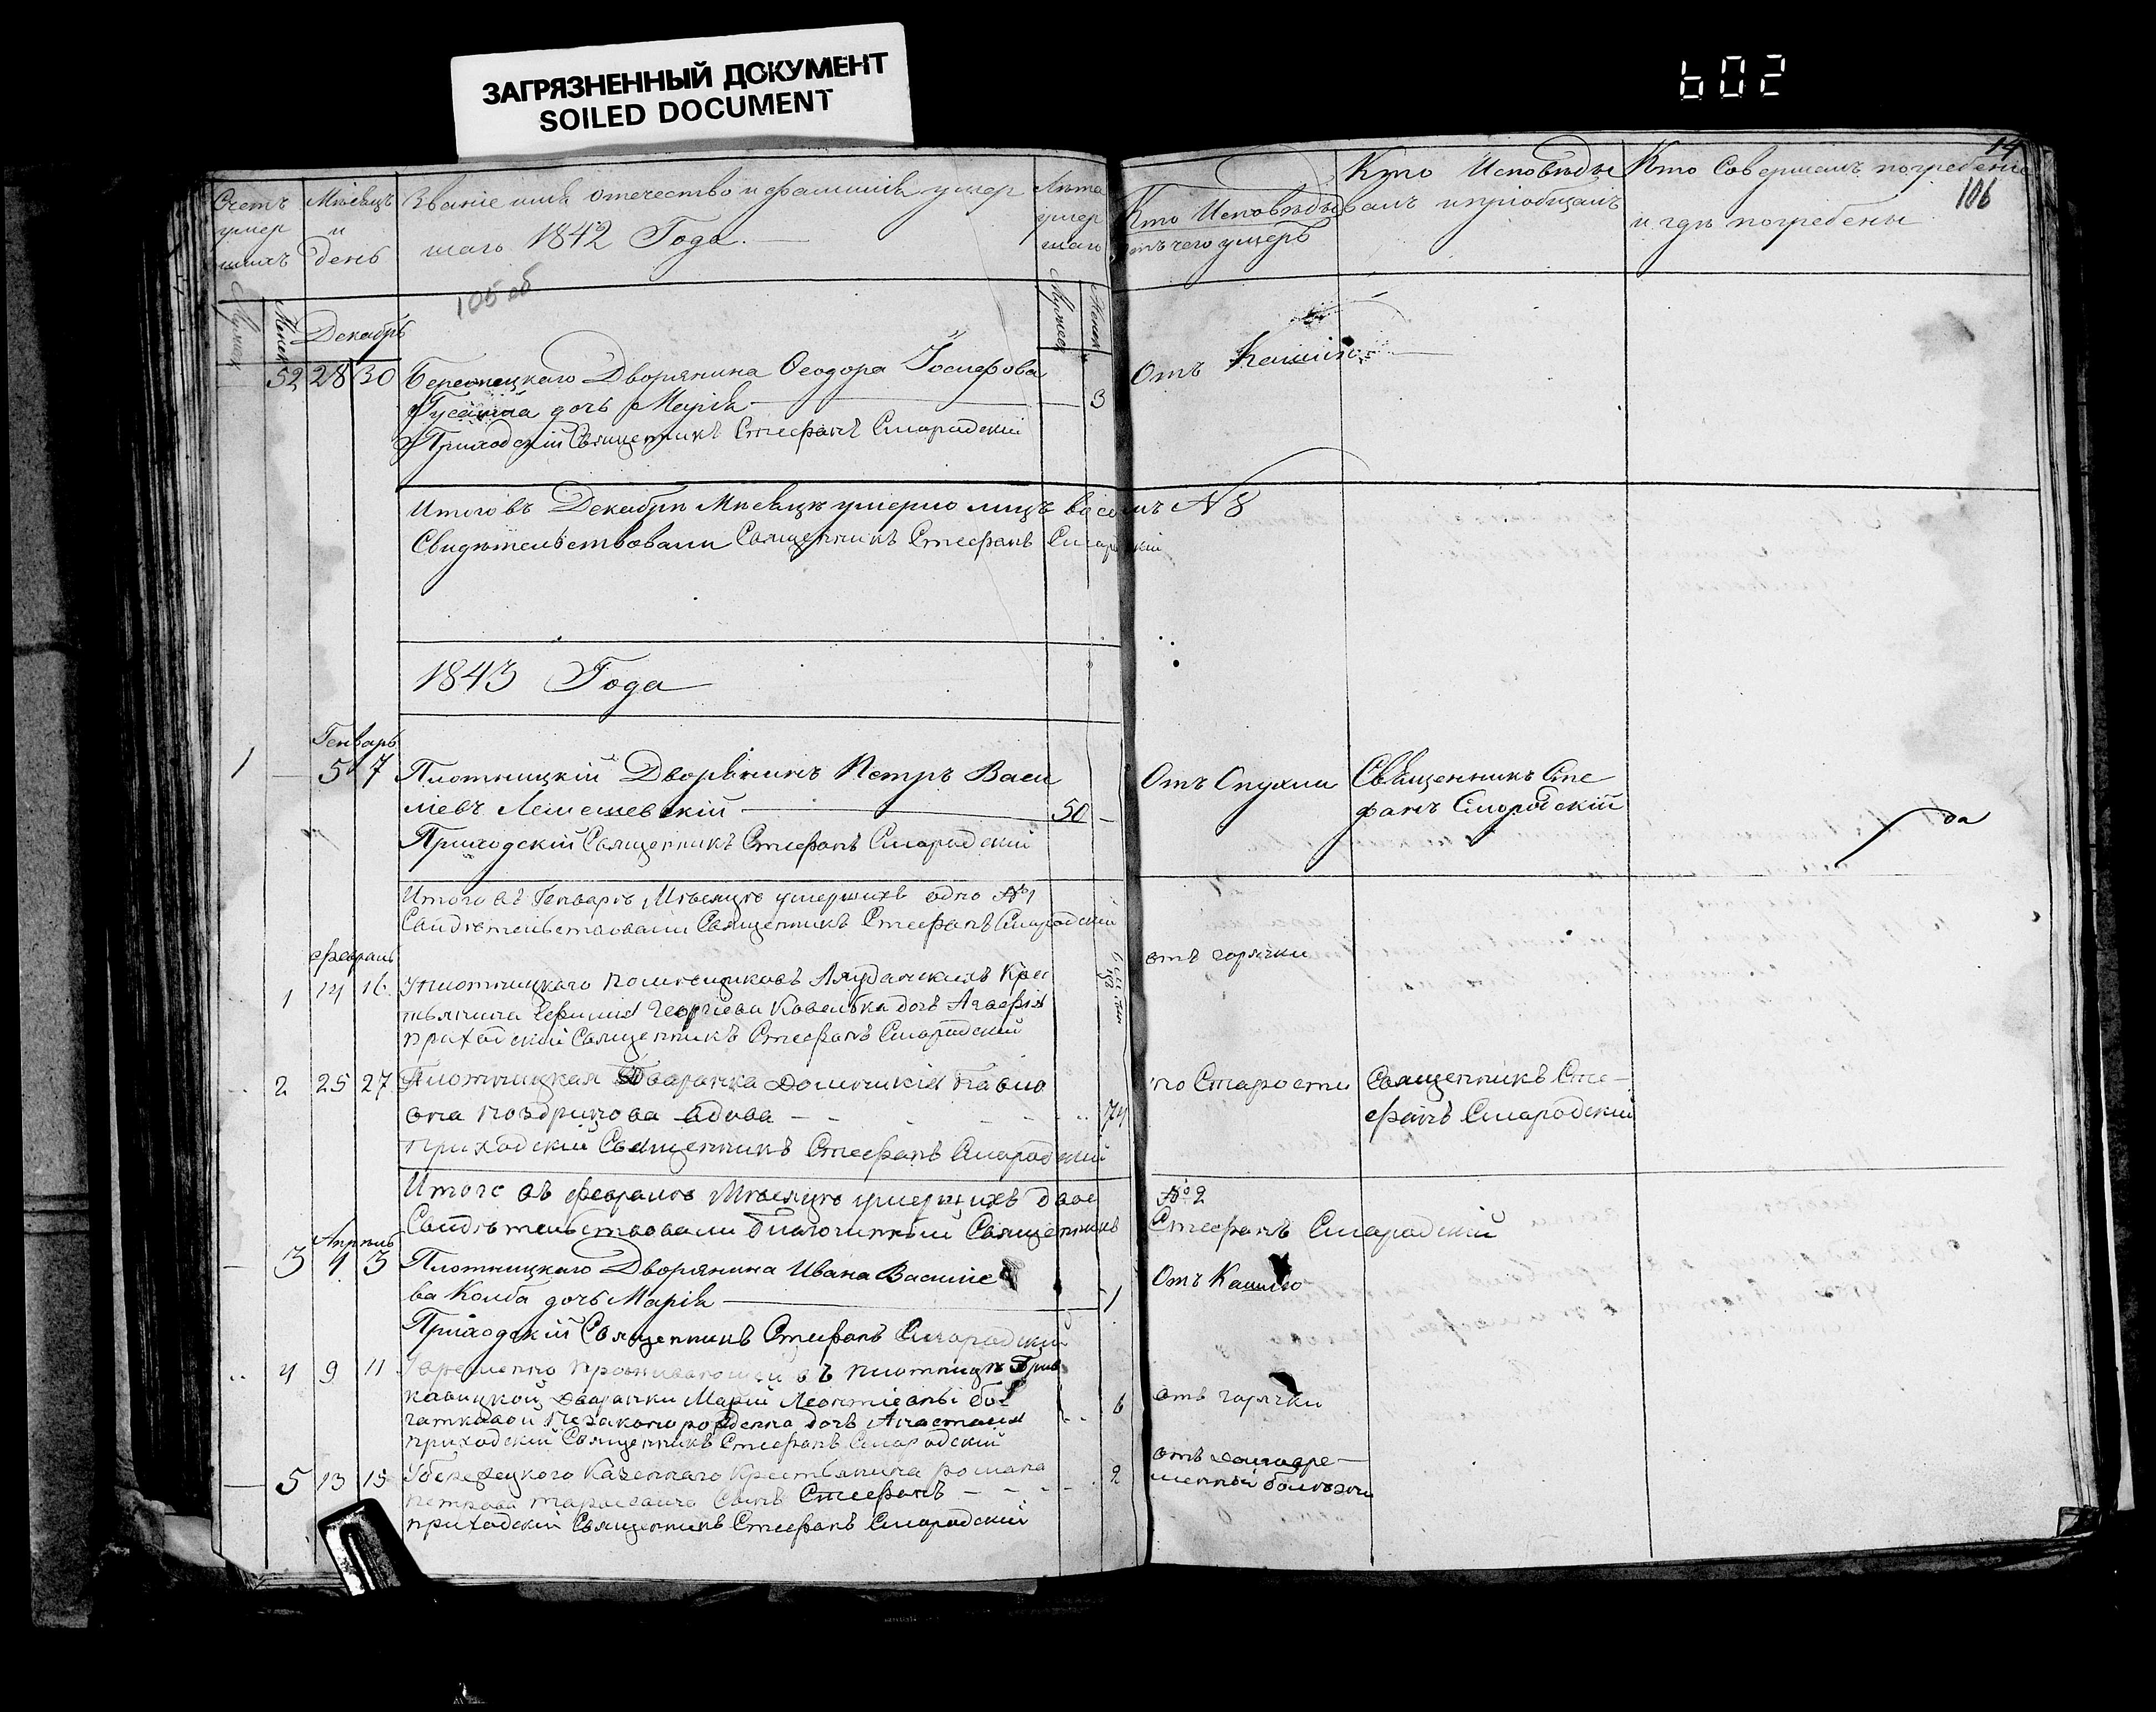 ЗАГРЯЗНЕННЫЙ ДОКУМЕНТ
SOILED DOCUMENT
602
14
106
Счетъ умер шихъ
Мѣсяцъ и день
Званіе имя отечество и фамилія умер
шаго 1842 Года.
Лѣта умер шаго
Кто Исповѣды
отъ чего умеръ
Кто Исповѣды
валъ и пріобщалъ
Кто Совершалъ погребеніе
и гдѣ погребены
105 об
Мужеск
Женск
Декабрь
Мужеск
Женск
52 28 30 Дворянина Ѳеодора Іосифова
дочь Марія 3
Отъ Кашлю
Приходскій Священникъ Стефанъ Смародскій
Итого въ Декабрѣ Мѣсяцѣ умерло лицъ восемъ № 8
Свидѣтельствовали Священникъ Стефанъ Смародскій
1843 Года
Генварь
1 5 7 Плотницкій Дворянинъ Петръ Васи
ліевъ Лемешевскій 50
Отъ Опухли
Священникъ Сте
фанъ Смородскій
да
Приходскій Священникъ Стефанъ Смародскій
Итого въ Генварѣ Мѣсяцѣ умершихъ одно № 1
Свидѣтельствовали Священникъ Стефанъ Смародскій
февраль
1 14 16 Плотницкаго помѣщиковъ Крес
тьянина Георгіева дочь Агафія
отъ горячки
приходскій Священникъ Стефанъ Смародскій
2 25 27 Плотницкая Дворянка Доминикія Павло
вна вдова 74
по Старости
Священникъ Сте-
фанъ Смародскій
приходскій Священникъ Стефанъ Смарадскій
Итого въ февралѣ Мѣсяцѣ умершихъ двое № 2
Свидѣтельствовали Благочинный Священникъ Стефанъ Смарадскій
Апрель
3 1 3 Плотницкаго Дворянина Ивана Василіе
ва Колба дочь Марія 1
Отъ Кашлю
Приходскій Священникъ Стефанъ Смародскій
4 9 11 Временно проживающей въ Плотницѣ
Дворянки Маріи Леонтіевны
незаконорожденна дочь Анастасія 6
отъ горячки
приходскій Священникъ Стефанъ Смародскій
5 13 15 казеннаго Крестьянина Романа
сынъ Стефанъ 2
болѣзни
приходскій Священникъ Стефанъ Смародскій